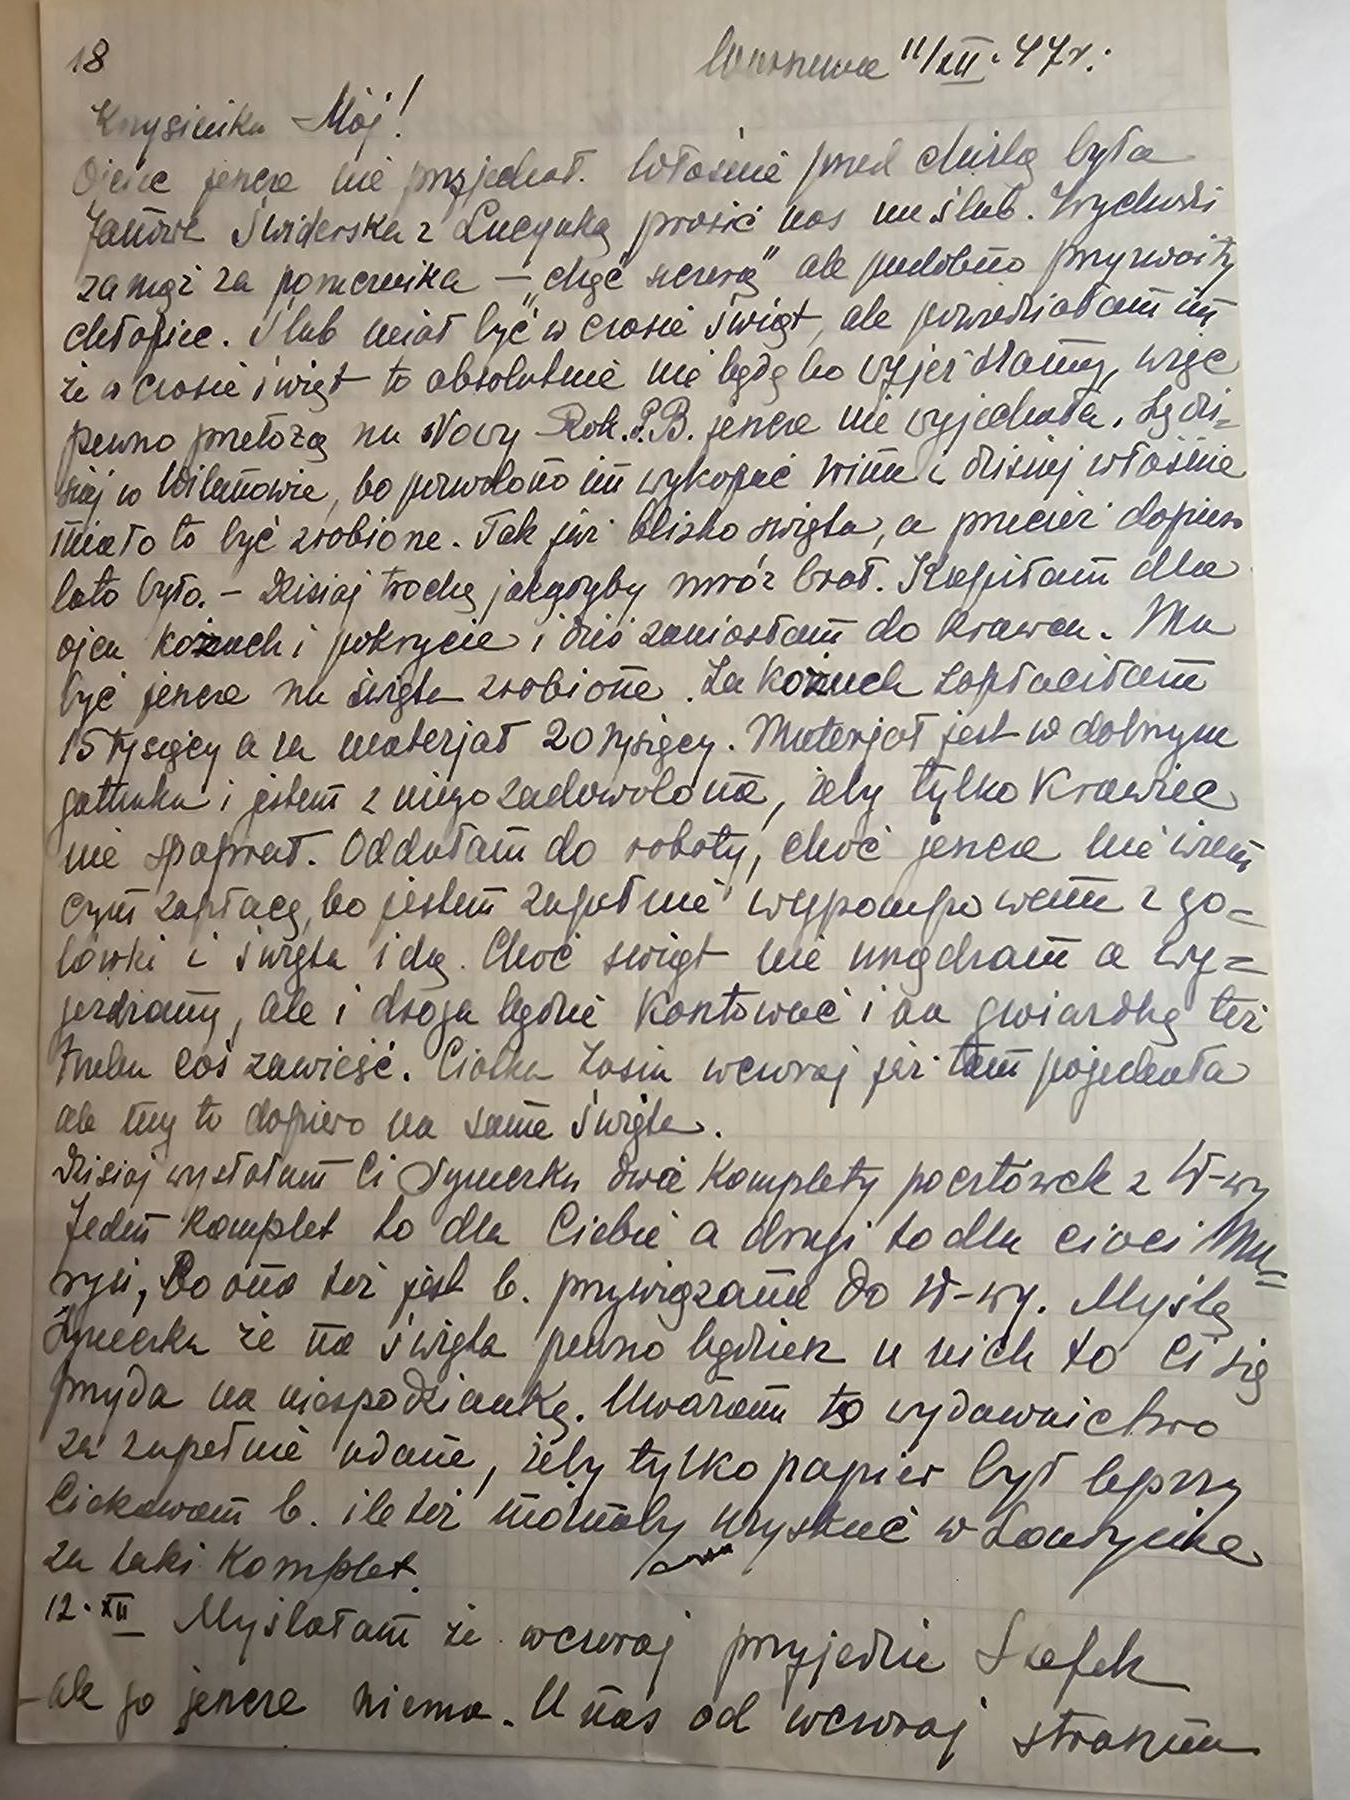 18 Warszawa 11/XII. 47r.
Krysieńka Mój!
Ojciec jeszcze nie przyjechał. Właśnie przed chwilą była
Janowa Świderska z Lucynką prosić nas na ślub. Wychodzi
zamąż za pomocnika — „chęć szczerą" ale podobno przyzwoity
chłopiec. Ślub miał być w czasie świąt, ale powiedziałam im
że w czasie świąt to absolutnie nie będę bo wyjeżdżamy, więc
pewno przełożą na Nowy Rok. P.B. jeszcze nie wyjechała. Są dzi=
siaj w Wilanowie, bo pozwolono im wykopać Wima i dzisiaj właśnie
miało to być zrobione. Tak już blisko święta, a przecież dopiero
lato było. – Dzisiaj trochę jakgdyby mróz brał. Kupiłam dla
ojca kożuch i pokrycie i dziś zaniosłam do krawca. Ma
być jeszcze na święta zrobione. Za kożuch zapłaciłam
15 tysięcy a za materjał 20 tysięcy. Materjał jest w dobrym
gatunku i jestem z niego zadowolona, żeby tylko krawiec
nie spaprał. Oddałam do roboty, choć jeszcze nie wiem
czym zapłacę, bo jestem zupełnie wypompowana z go=
tówki i święta idą. Choć świąt nie urządzam a wy=
jeżdżamy, ale i droga będzie kosztować i na gwiazdkę też
trzeba coś zawieść. Ciotka Zosia wczoraj już tam pojechała
ale my to dopiero na same święta.
Dzisiaj wysłałam Ci Syneczku dwa komplety pocztówek z W-wy
Jeden komplet to dla Ciebie a drugi to dla cioci Ma=
rysi, Bo ona też jest b. przywiązana do W-wy. Myślę
Syneczku że na święta pewno będziesz u nich to Ci się
przyda na niespodziankę. Uważam to wydawnictwo
za zupełnie udane, żeby tylko papier był lepszy
Ciekawam b. ile też możnaby uzyskać w Londynie
za taki komplet.
12. XII Myślałam że wczoraj przyjedzie Stefek
ale go jeszcze niema. U nas od wczoraj straszna